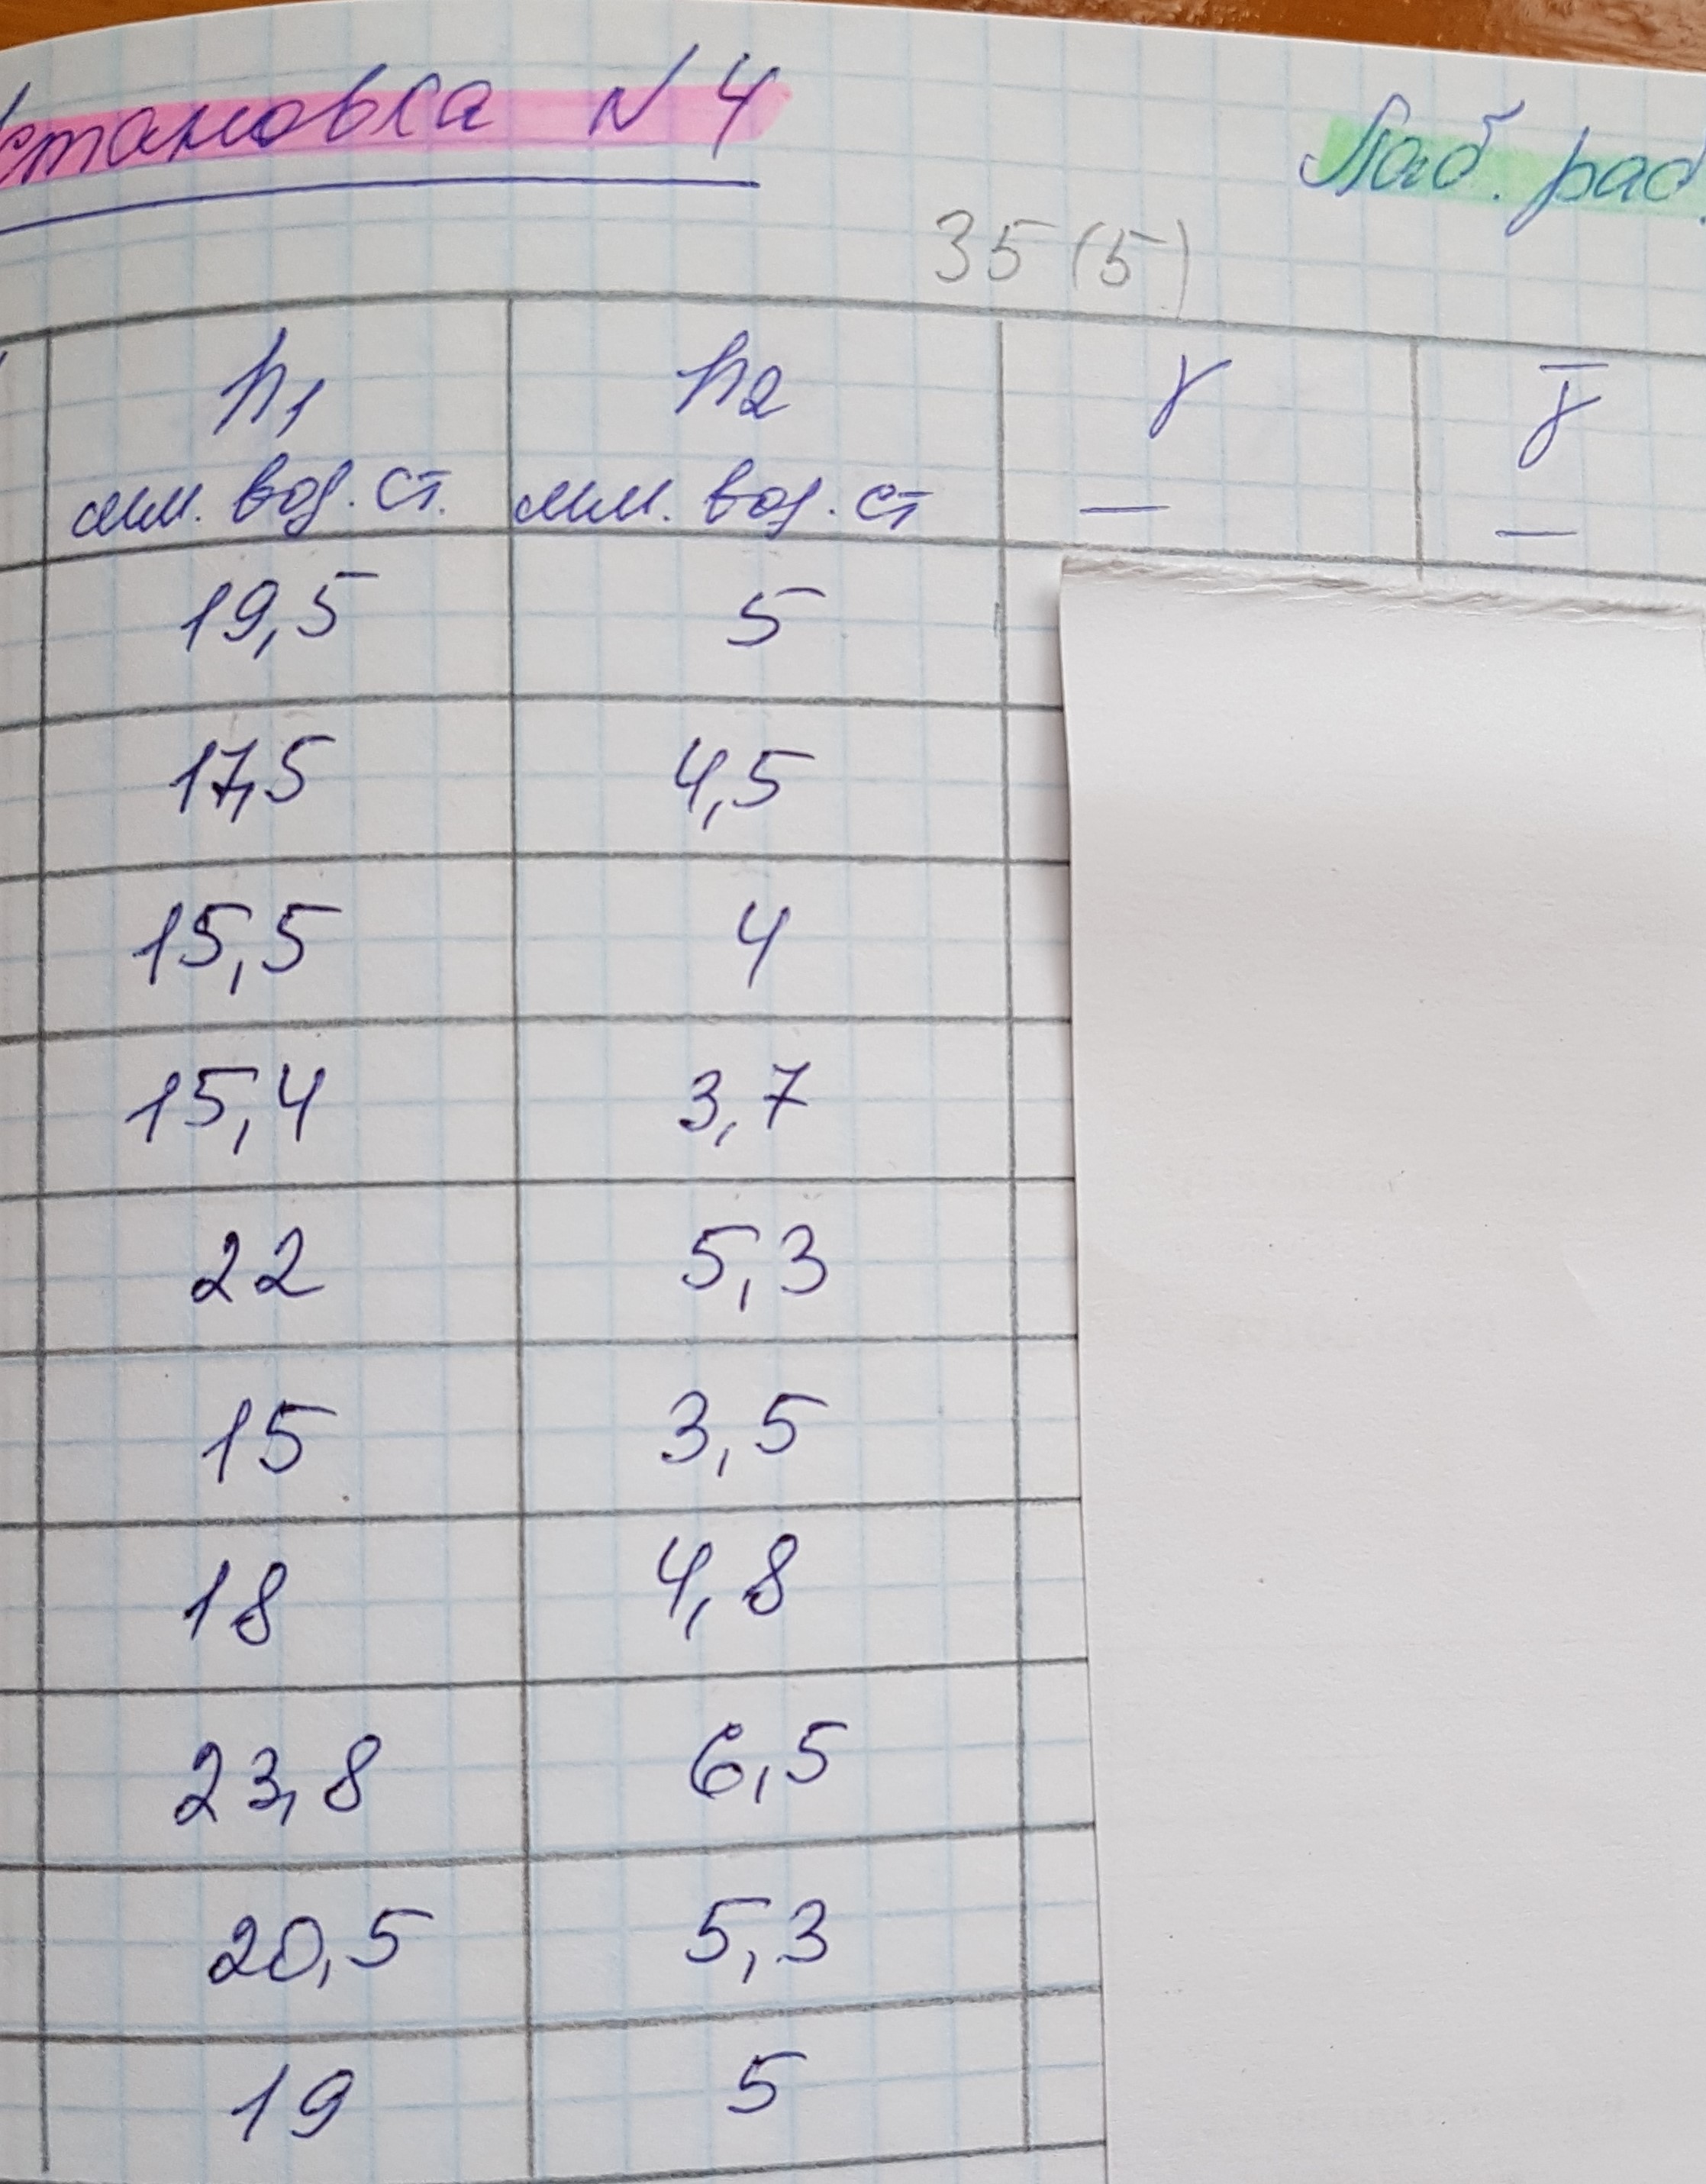 становка N 4
Лаб. раб.
35 (5)
h1 h2 γ γ̄
мм. вод. ст. мм. вод. ст — —
19,5 5
17,5 4,5
15,5 4
15,4 3,7
22 5,3
15 3,5
18 4,8
23,8 6,5
20,5 5,3
19 5